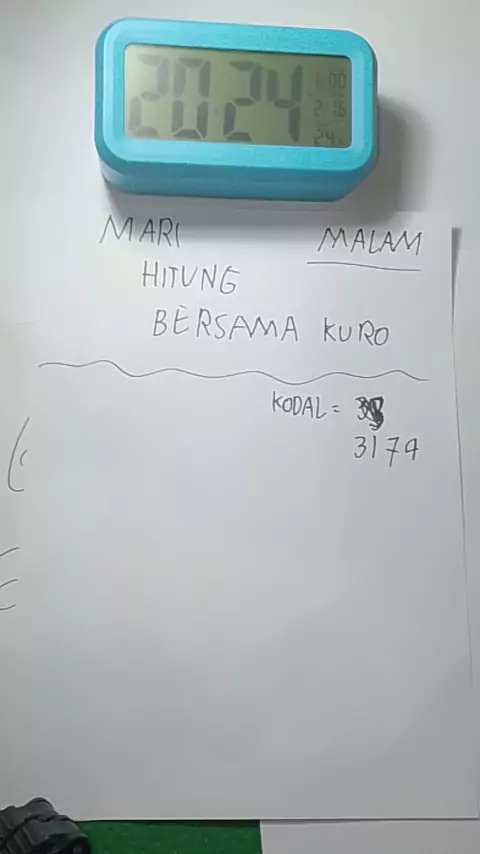 20:24
1:00
2:16
24
MARI
MALAM
HITUNG
BERSAMA KURO
KODAL =
3174